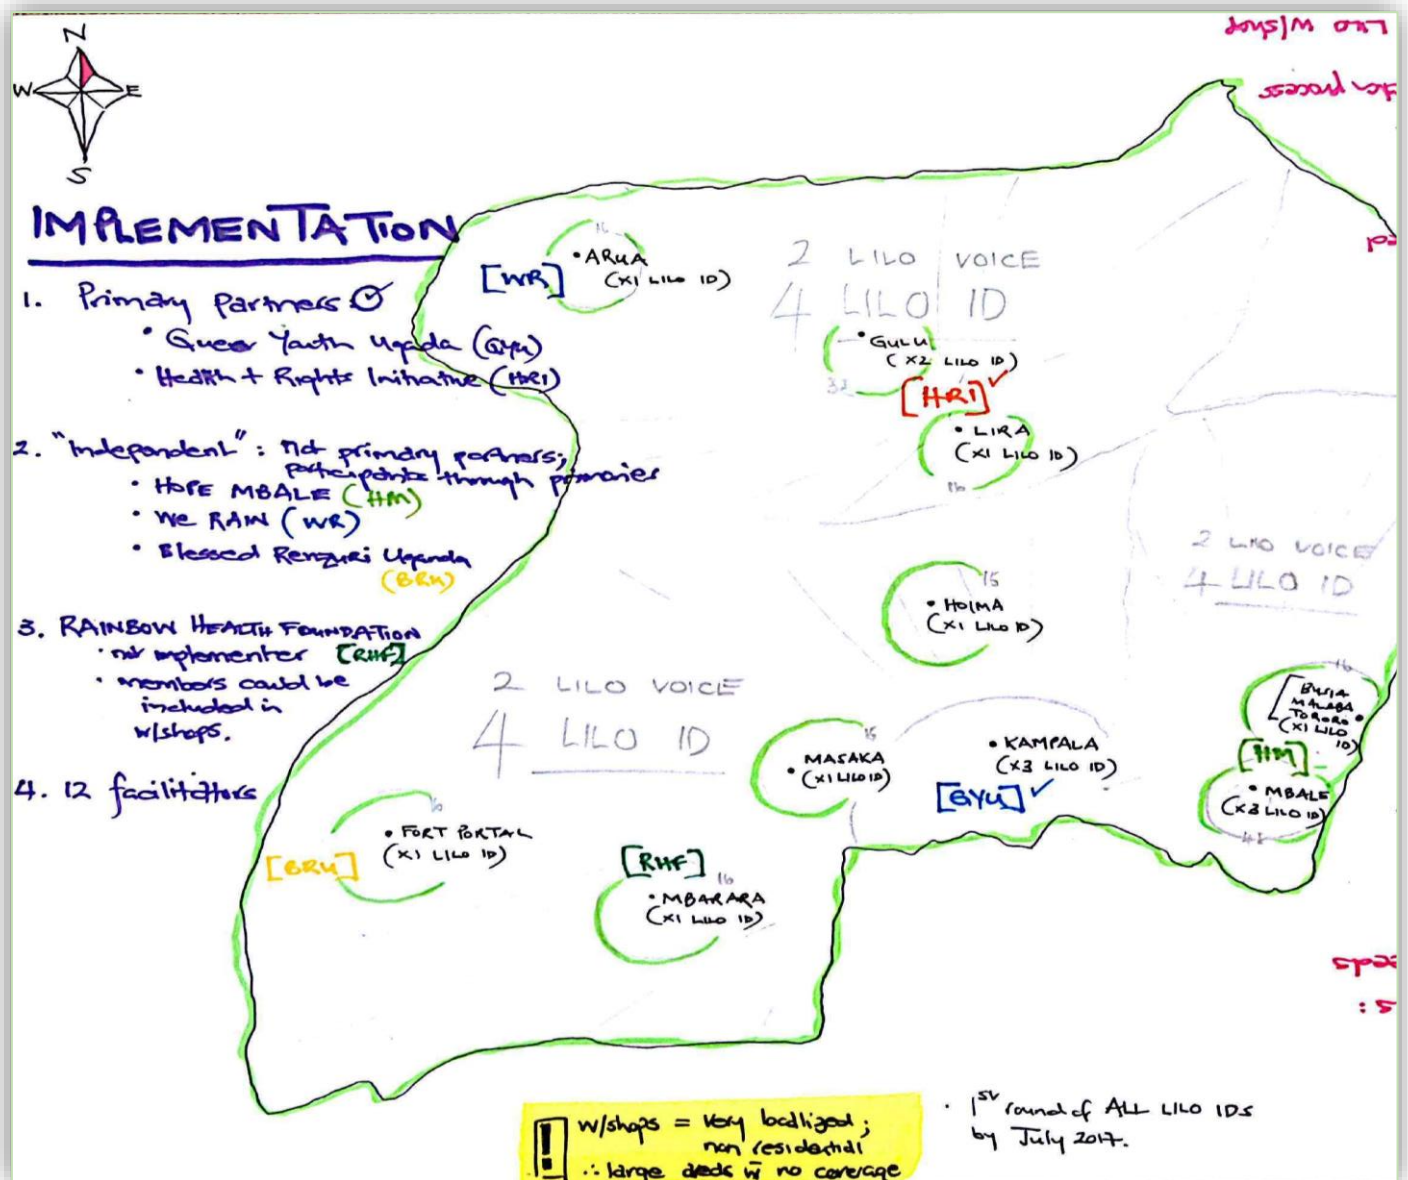 N
W E
S
IMPLEMENTATION
1. Primary Partners
• Queer Youth Uganda (QYU)
• Health + Rights Initiative (HRI)
2. "Independent": not primary partners;
participants through primaries
• HOPE MBALE (HM)
• We RAIN (WR)
• Blessed Renzuri Uganda
(BRU)
3. RAINBOW HEALTH FOUNDATION
• not implementer [RHF]
• members could be
included in
w/shops.
4. 12 facilitators
LILO w/shop
process
16
• ARUA
(X1 LILO ID)
[WR]
2 LILO VOICE
4 LILO ID
• GULU
(X2 LILO ID)
32
[HRI] ✓
• LIRA
(X1 LILO ID)
16
2 LILO VOICE
4 LILO ID
15
• HOIMA
(X1 LILO ID)
2 LILO VOICE
4 LILO ID
16
BUSIA
MALABA
TORORO •
(X1 LILO
ID)
[HM]
• MBALE
(X3 LILO ID)
48
15
MASAKA
• (X1 LILO ID)
• KAMPALA
(X3 LILO ID)
[QYU] ✓
16
• FORT PORTAL
(X1 LILO ID)
[BRU]
[RHF]
16
• MBARARA
(X1 LILO ID)
! w/shops = very localized;
non residential
∴ large areas w no coverage
• 1st round of ALL LILO IDS
by July 2017.